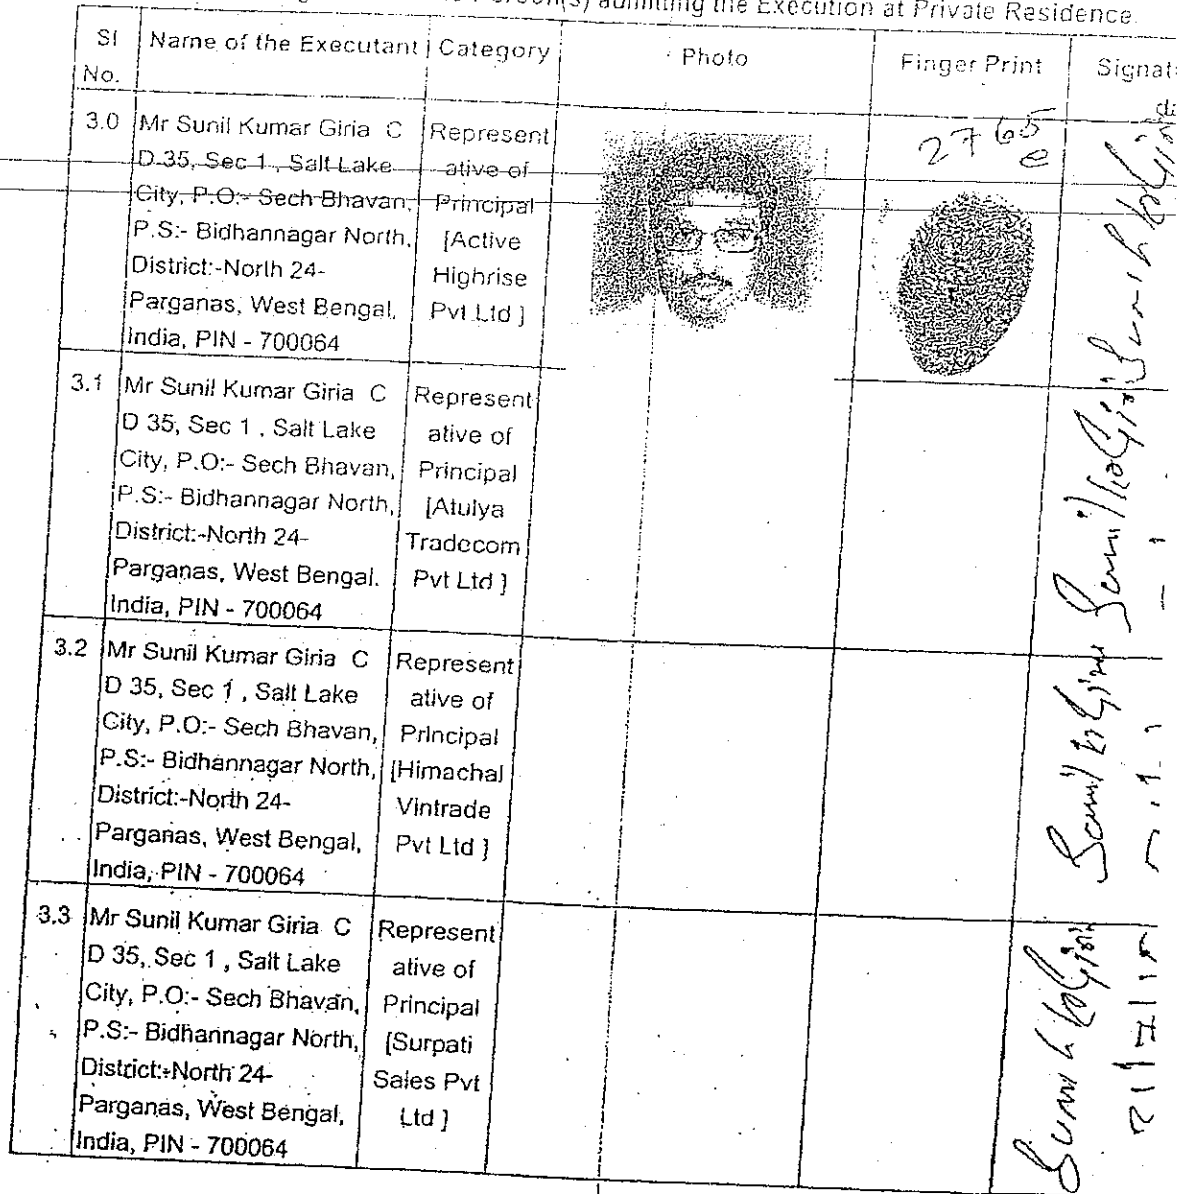 the Execution at Private Residence.
Sl No.
Name of the Executant
Category
Photo
Finger Print
Signat
3.0
Mr Sunil Kumar Giria C
D 35, Sec 1 , Salt Lake
City, P.O:- Sech Bhavan,
P.S:- Bidhannagar North,
District:-North 24-
Parganas, West Bengal,
India, PIN - 700064
Represent
ative of
Principal
[Active
Highrise
Pvt Ltd ]
2765
e
3.1
Mr Sunil Kumar Giria C
D 35, Sec 1 , Salt Lake
City, P.O:- Sech Bhavan,
P.S:- Bidhannagar North,
District:-North 24-
Parganas, West Bengal.
India, PIN - 700064
Represent
ative of
Principal
[Atulya
Tradecom
Pvt Ltd ]
3.2
Mr Sunil Kumar Giria C
D 35, Sec 1 , Salt Lake
City, P.O:- Sech Bhavan,
P.S:- Bidhannagar North,
District:-North 24-
Parganas, West Bengal,
India, PIN - 700064
Represent
ative of
Principal
[Himachal
Vintrade
Pvt Ltd ]
3.3
Mr Sunil Kumar Giria C
D 35, Sec 1 , Salt Lake
City, P.O:- Sech Bhavan,
P.S:- Bidhannagar North,
District:-North 24-
Parganas, West Bengal,
India, PIN - 700064
Represent
ative of
Principal
[Surpati
Sales Pvt
Ltd ]